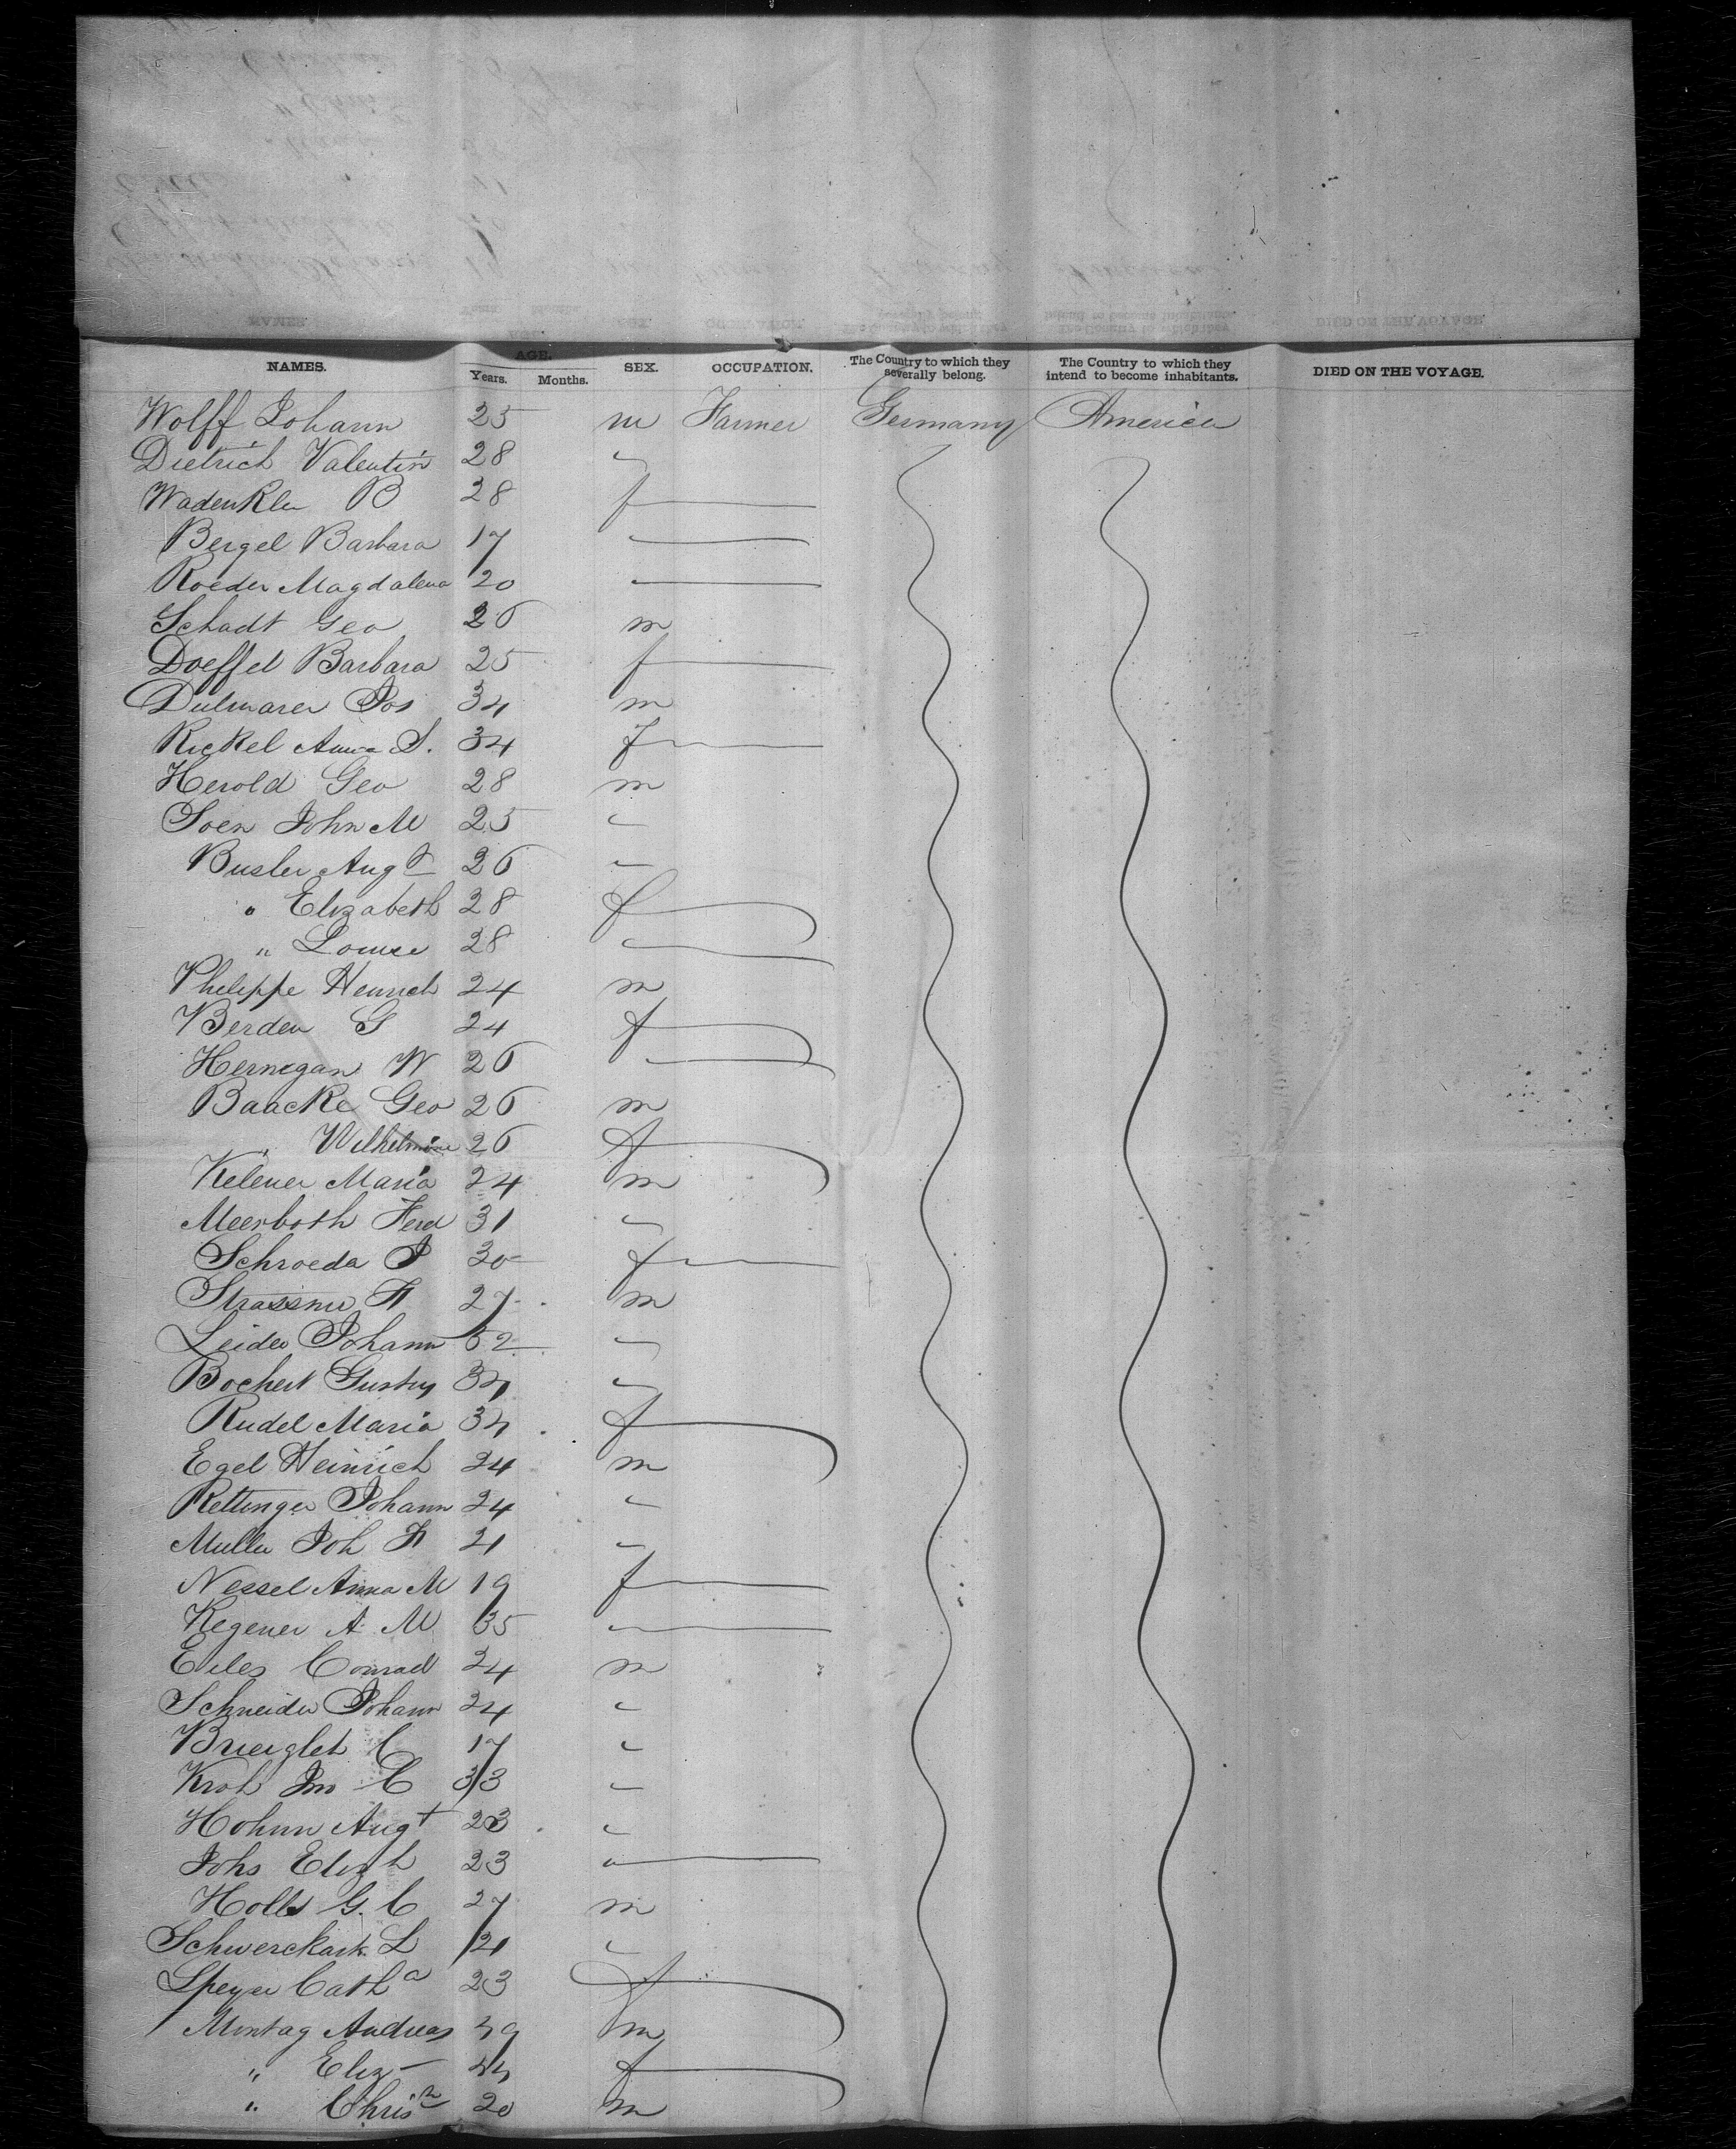 NAMES. AGE. Years. Months. SEX. OCCUPATION. The Country to which they severally belong. The Country to which they intend to become inhabitants. DIED ON THE VOYAGE.
Wolff Johann 25 m Farmer Germany America
Dietrich Valentin 28 "
B 28 f
Bergel Barbara 17 "
Roeder Magdalena 20 "
Schadt Geo 26 m
Doeffel Barbara 25 f
Dulmarer Jos 34 m
Rickel Anna S. 34 f
Herold Geo 28 m
Soen John M 25 "
Busler Augt 26 "
" Elizabeth 28 f
" Louise 28 "
Philippe Heinrich 24 m
Berden G 24 f
Hernegan W 26 "
Baacke Geo 26 m
" Wilhelmine 26 f
Kelener Maria 24 m
Meerboth Ferd 31 "
Schroeda J 30 f
27 m
Leider Johann "
Bochert Gustav 34 "
Rudel Maria 34 f
Egel Heinrich 24 m
Rettinger Johann 24 "
Muller Joh H 21 "
Nessel Anna M 19 f
Kegener A. M 35 "
Eiles Conrad 24 m
Schneider Johann 24 "
C 17 "
Kroh Jno C 33 "
Hohnn Augt 23 "
Johs Elizh 23 "
G. C 27 m
L 21 "
Speyer Catha 23 f
Montag Andreas 49 m
" Eliz 44 f
" Chrisn 20 m